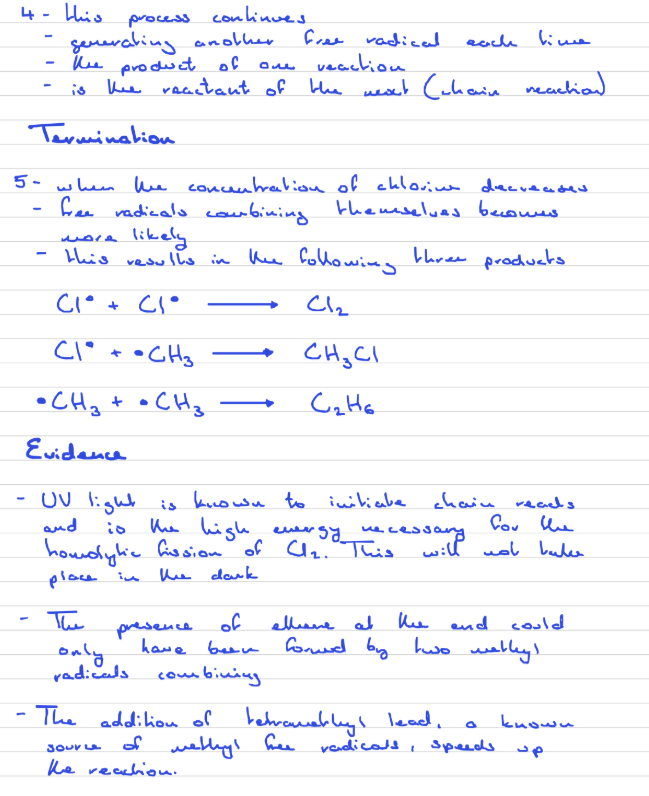 4 - this process continues
- generating another free radical each time
- the product of one reaction
- is the reactant of the next (chain reaction)
Termination
5 - when the concentration of chlorine decreases
- free radicals combining themselves becomes
more likely
- this results in the following three products
Cl• + Cl• ⟶ Cl₂
Cl• + •CH₃ ⟶ CH₃Cl
•CH₃ + •CH₃ ⟶ C₂H₆
Evidence
- UV light is known to initiate chain reacts
and is the high energy necessary for the
homolytic fission of Cl₂. This will not take
place in the dark
- The presence of ethane at the end could
only have been formed by two methyl
radicals combining
- The addition of tetramethyl lead, a known
source of methyl free radicals, speeds up
the reaction.